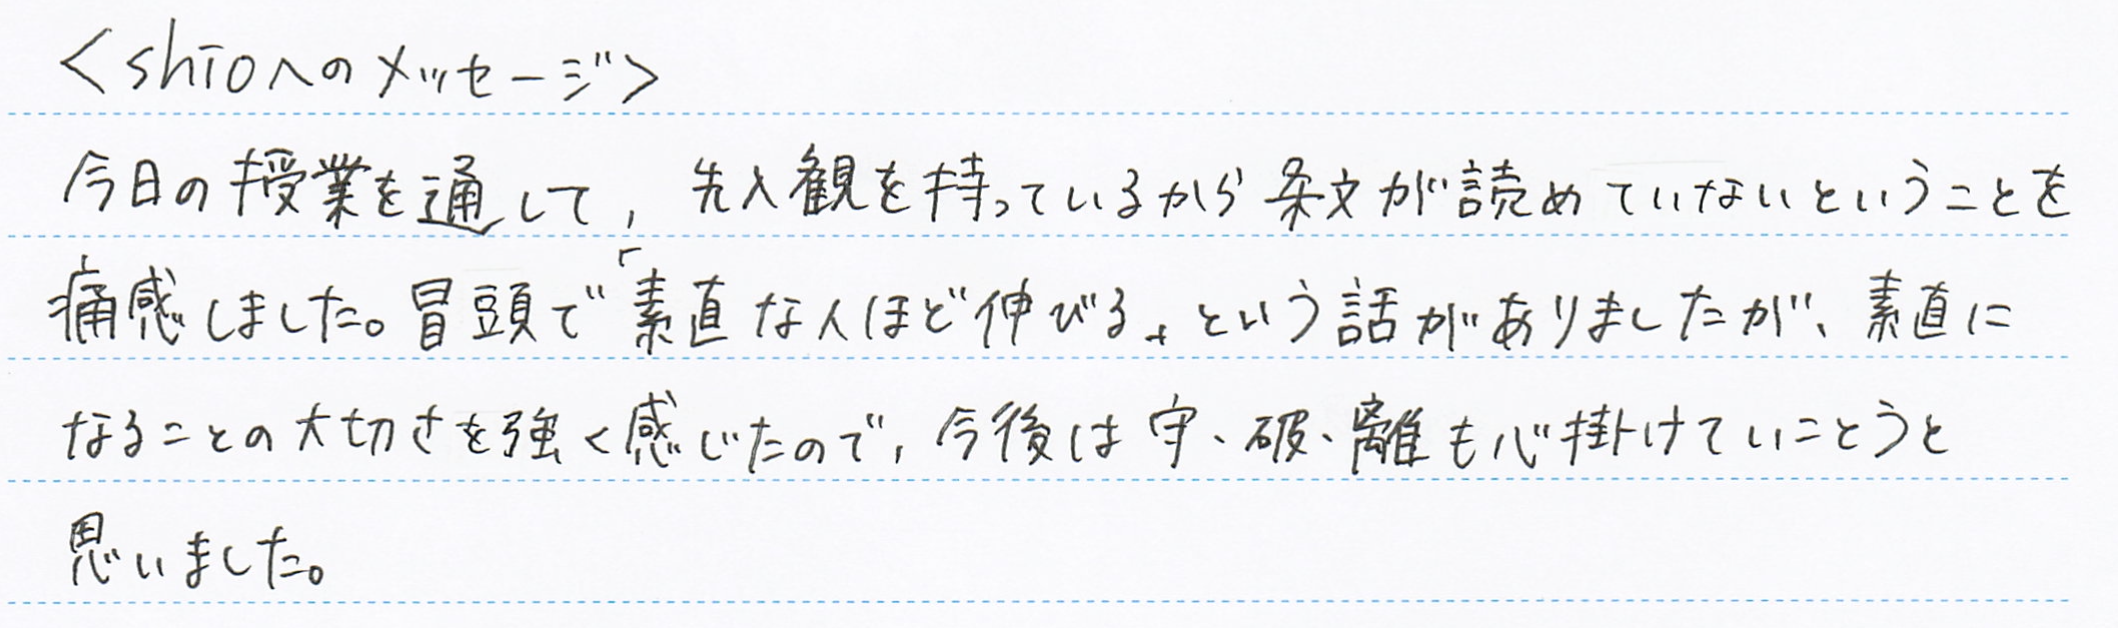 <shioへのメッセージ>
今日の授業を通して, 先入観を持っているから条文が読めていないということを
痛感しました。冒頭で「素直な人ほど伸びる」という話がありましたが、素直に
なることの大切さを強く感じたので, 今後は守、破、離も心掛けていことうと
思いました。